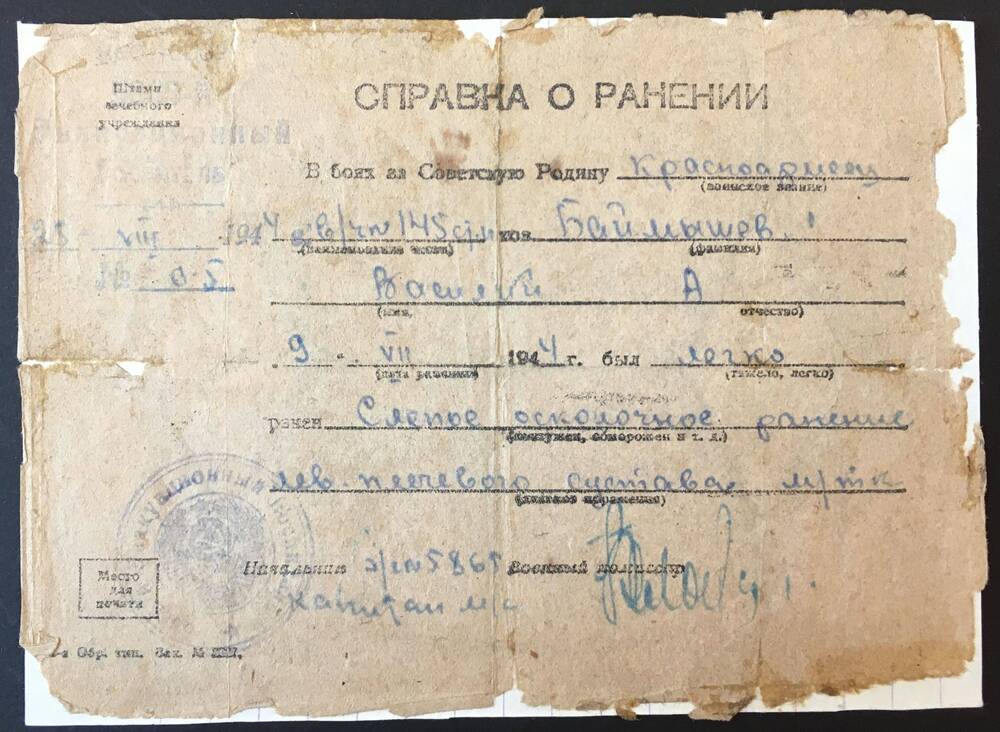 Штамп
лечебного
учреждения
СПРАВКА О РАНЕНИИ
В боях за Советскую Родину Красноармеец
(воинское звание)
25 VIII 1944
145 сп Баймышев
(наименование части) (фамилия)
№ 05
Василий А
(имя, отчество)
9 VII 1944 г. был легко
(дата ранения) (тяжело, легко)
ранен Слепое осколочное ранение
(контужен, обморожен и т. д.)
лев. плечевого сустава м/тк
(диагноз поражения)
ЭВАКУАЦИОННЫЙ
Начальник э/г № 5865 Военный комиссар
капитан м/с
Место
для
печати
Обр. тип. Зак. №